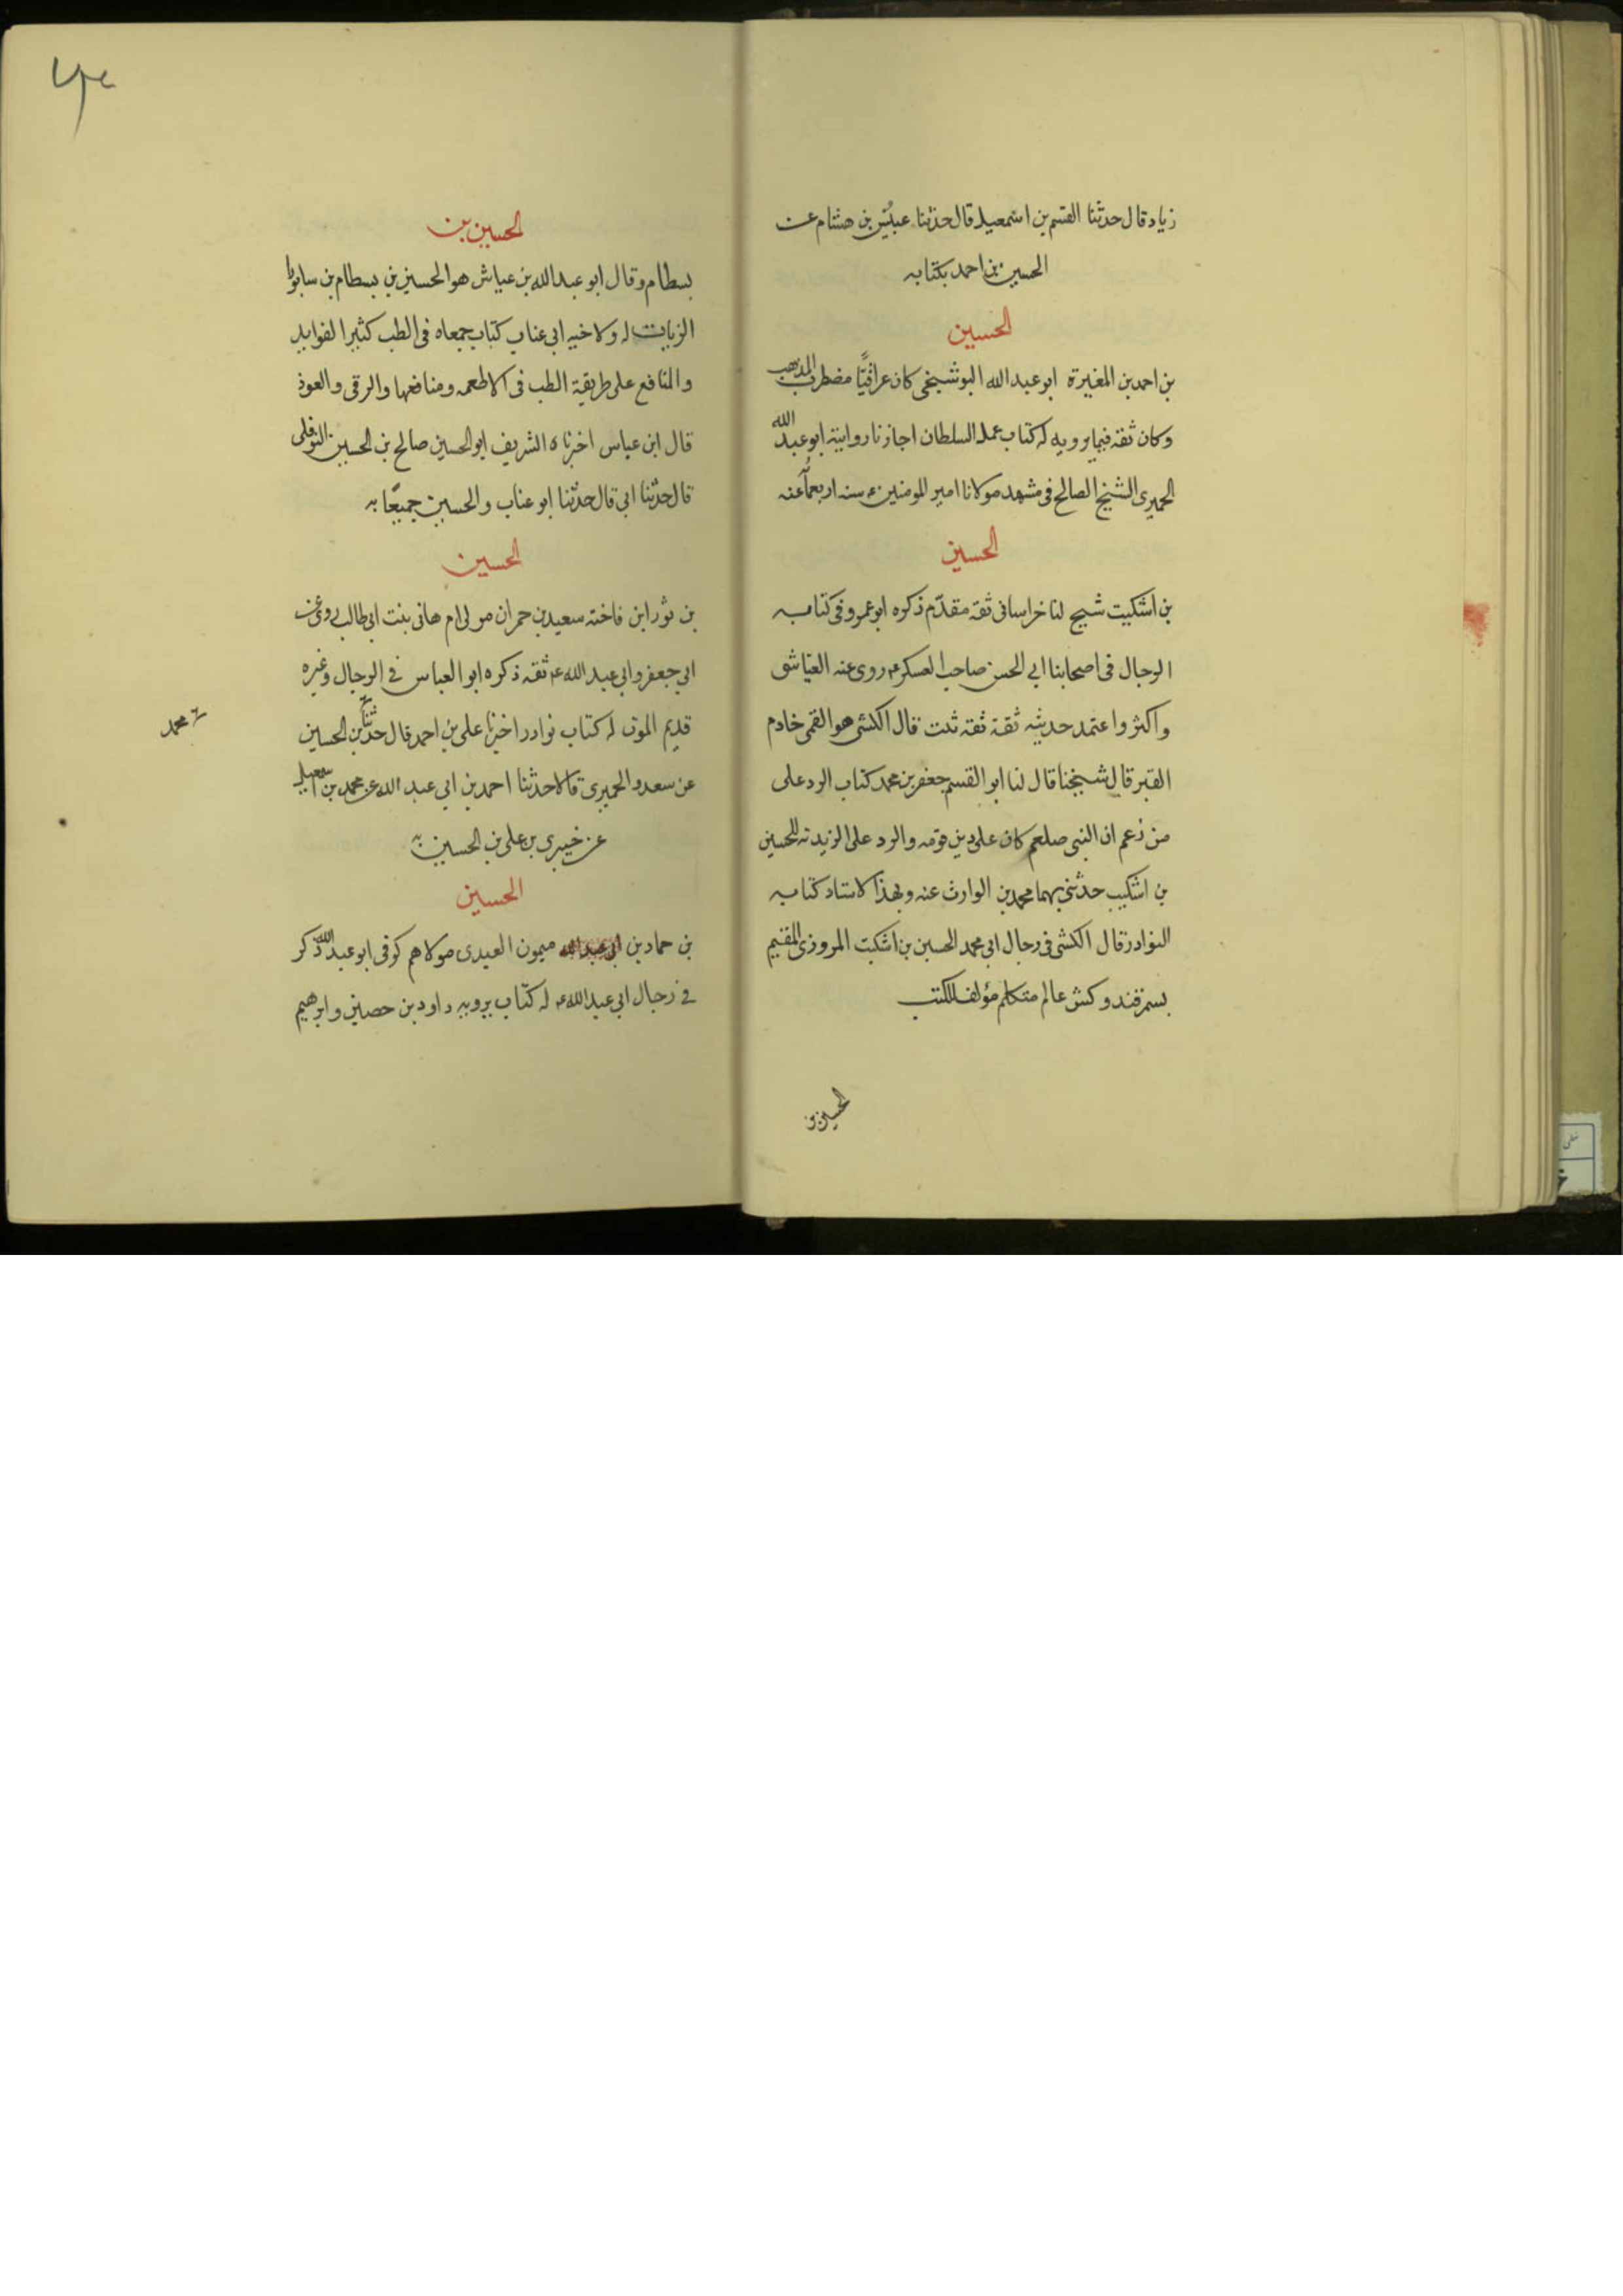 زياد قال حدثنا القسم بن اسمعيل قال حدثنا عبيس بن هشام عن
الحسين بن احمد بكتابه
الحسين
بن احمد بن المغيرة ابو عبدالله البوشنجى كان عراقيًّا مضطرب المذهب
وكان ثقة فيما يرويه له كتاب عمل السلطان اجازنا روايته ابوعبدالله
الحميرى الشيخ الصالح فى مشهد مولانا امير المومنين ع سنه اربعمأ عنه
الحسين
بن اشكيت شيخ لنا خراسانى ثقة مقدّم ذكره ابوعمرو فى كتابه
الرجال فى اصحابنا ابى الحسن صاحب العسكر ع روى عنه العياشى
واكثر واعتمد حديثه ثقة ثقة ثبت قال الكشى هو القمى خادم
القبر قال شيخنا قال لنا ابو القسم جعفر بن محمد كتاب الرد على
من زعم ان النبى صلعم كان على دين قومه والرد على الزيديه للحسين
بن اشكيب حدثنى بهما محمد بن الوارث عنه وبهذا الاسناد كتابه
النوادر قال الكشى فى رجال ابى محمد الحسين بن اشكيت المروزى المقيم
بسمرقند وكش عالم متكلم مؤلف للكتب
الحسين بن
الحسين بن
بسطام وقال ابو عبدالله بن عياش هو الحسين بن بسطام بن سابور
الزيات له ولاخيه ابى عتاب كتاب جمعاه فى الطب كثير الفوايد
والمنافع على طريقة الطب فى الاطعمه ومنافعها والرقى والعوذ
قال ابن عياس اخبرناه الشريف ابو الحسين صالح بن الحسين النوفلى
قال حدّثنا ابى قال حدّثنا ابو عتاب والحسين جميعًا به
الحسين
بن ثور ابن فاخته سعيد بن حمران مولى ام هانى بنت ابى طالب روى عن
ابى جعفر وابى عبدالله ع ثقه ذكره ابو العباس فى الرجال وغيره
قديم الموت له كتاب نوادر اخبرنا على بن احمد قال حدثنا بن الحسين
محمد
عن سعد والحميرى قالا حدثنا احمد بن ابى عبدالله عن محمد بن اسمعيل
عن خيبرى بن على بن الحسين به
الحسين
بن حماد بن ميمون العبدى مولاهم كوفى ابو عبدالله ذكر
فى رجال ابى عبدالله ع له كتاب يرويه داود بن حصين وابرهيم